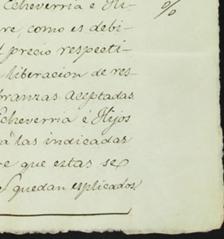 Echeverria e Hi-
re, como es debi-
l precio respecti-
liberacion de res-
branzas aceptadas
Echeverria e Hijos
a las indicadas
re que estas se
quedan esplicados
%